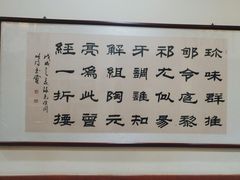 珍味群推
郇令庖黎
祁尤似易
牙調誰知
解組陶元
亮爲此曾
經一折腰